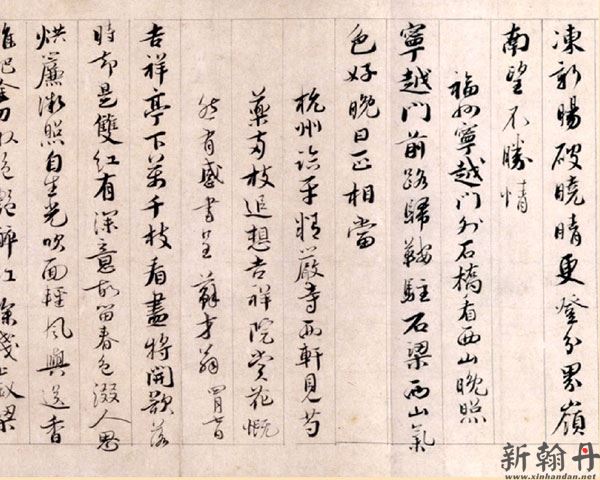 凍新陽破曉晴更登分界嶺
南望不勝情
福州寧越門外石橋看西山晚照
寧越門前路歸鞍駐石梁西山氣
色好晚日正相當
杭州臨平精嚴寺西軒見芍
藥兩枝追想吉祥院賞花慨
然有感書呈蘇才翁 四月七日
吉祥亭下萬千枝看盡將開欲落
時却是雙紅有深意故留春色綴人思
烘簾微照自生光吹面輕風與送香
誰把金刀收絕艷醉紅深淺上釵梁
新翰丹
www.xinhandan.net